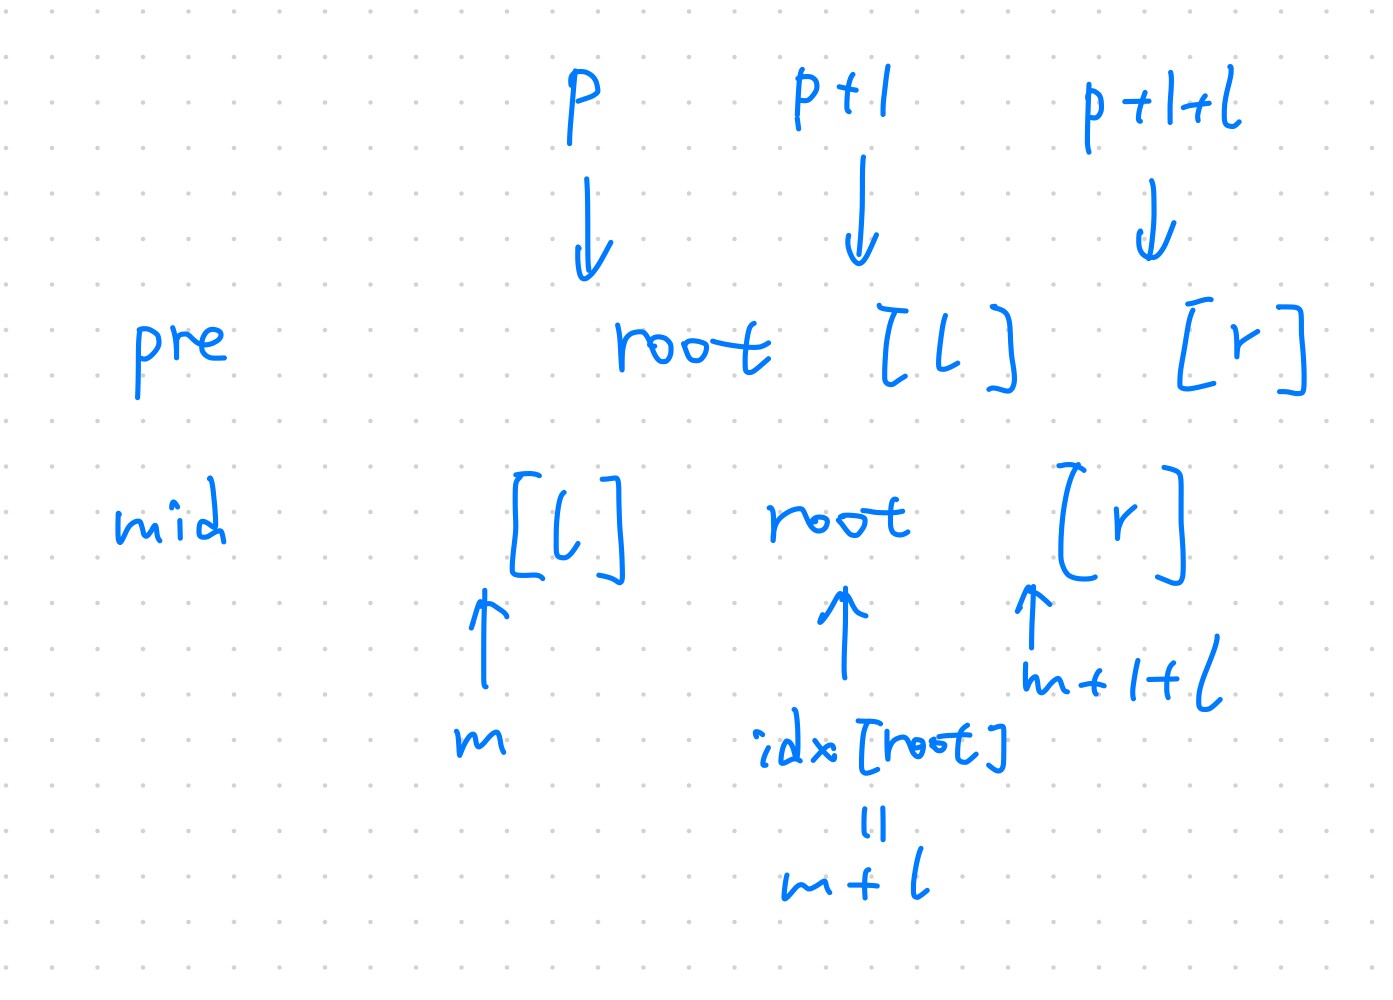 p p+1 p+1+l
pre root [l] [r]
mid [l] root [r]
m+1+l
m idx[root]
=
m+l